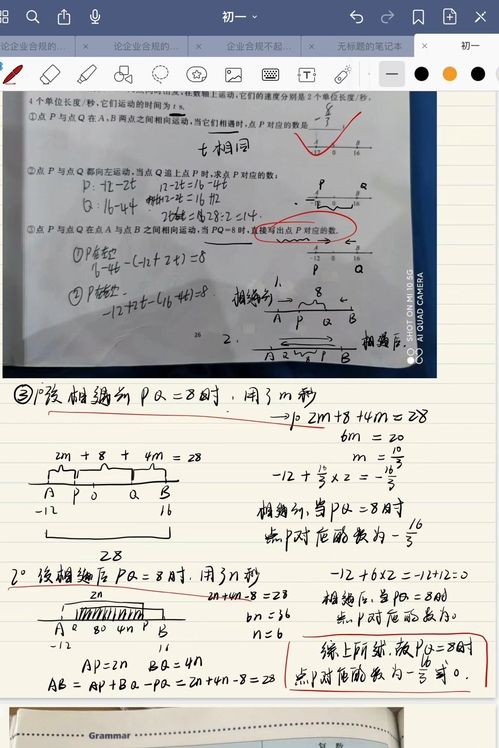 初一
论企业合规的...
论企业合规的...
企业合规不起...
无标题的笔记本
初一
在数轴上运动,它们的速度分别是2个单位长度/秒,
4个单位长度/秒,它们运动的时间为t s.
①点P与点Q在A、B两点之间相向运动,当它们相遇时,点P对应的数是
-8/3
A B
-12 0 16
t相同
②点P与点Q都向左运动,当点Q追上点P时,求点P对应的数;
P:12-2t 12-2t=16-4t
Q:16-44
28÷2=14.
P Q
0 16
③点P与点Q在点A与点B之间相向运动,当PQ=8时,直接写出点P对应的数.
A B
-12 0 16
P Q
16-4t-(-12+2t)=8
-12+2t-(16-4t)=8
相遇前 1.
8
A P Q B
26
2.
A Q 8 P B
相遇后.
SHOT ON MI 10 5G
AI QUAD CAMERA
③1°设相遇前PQ=8时,用了m秒
→1° 2m+8+4m=28
6m=20
m=10/3
2m + 8 + 4m = 28
-12+10/3×2=-16/3
A P 0 Q B
-12 16
28
相遇前,当PQ=8时
点P对应的数为-16/3
2°设相遇后PQ=8时,用了n秒
2n
2n+4n-8=28
6n=36
n=6
-12+6×2=-12+12=0
相遇后,当PQ=8时
点P对应的数为0
A Q 8 0 4n P B
-12 16
AP=2n BQ=4n
AB=AP+BQ-PQ=2n+4n-8=28
综上所述,故PQ=8时
点P对应的数为-16/3或0.
Grammar